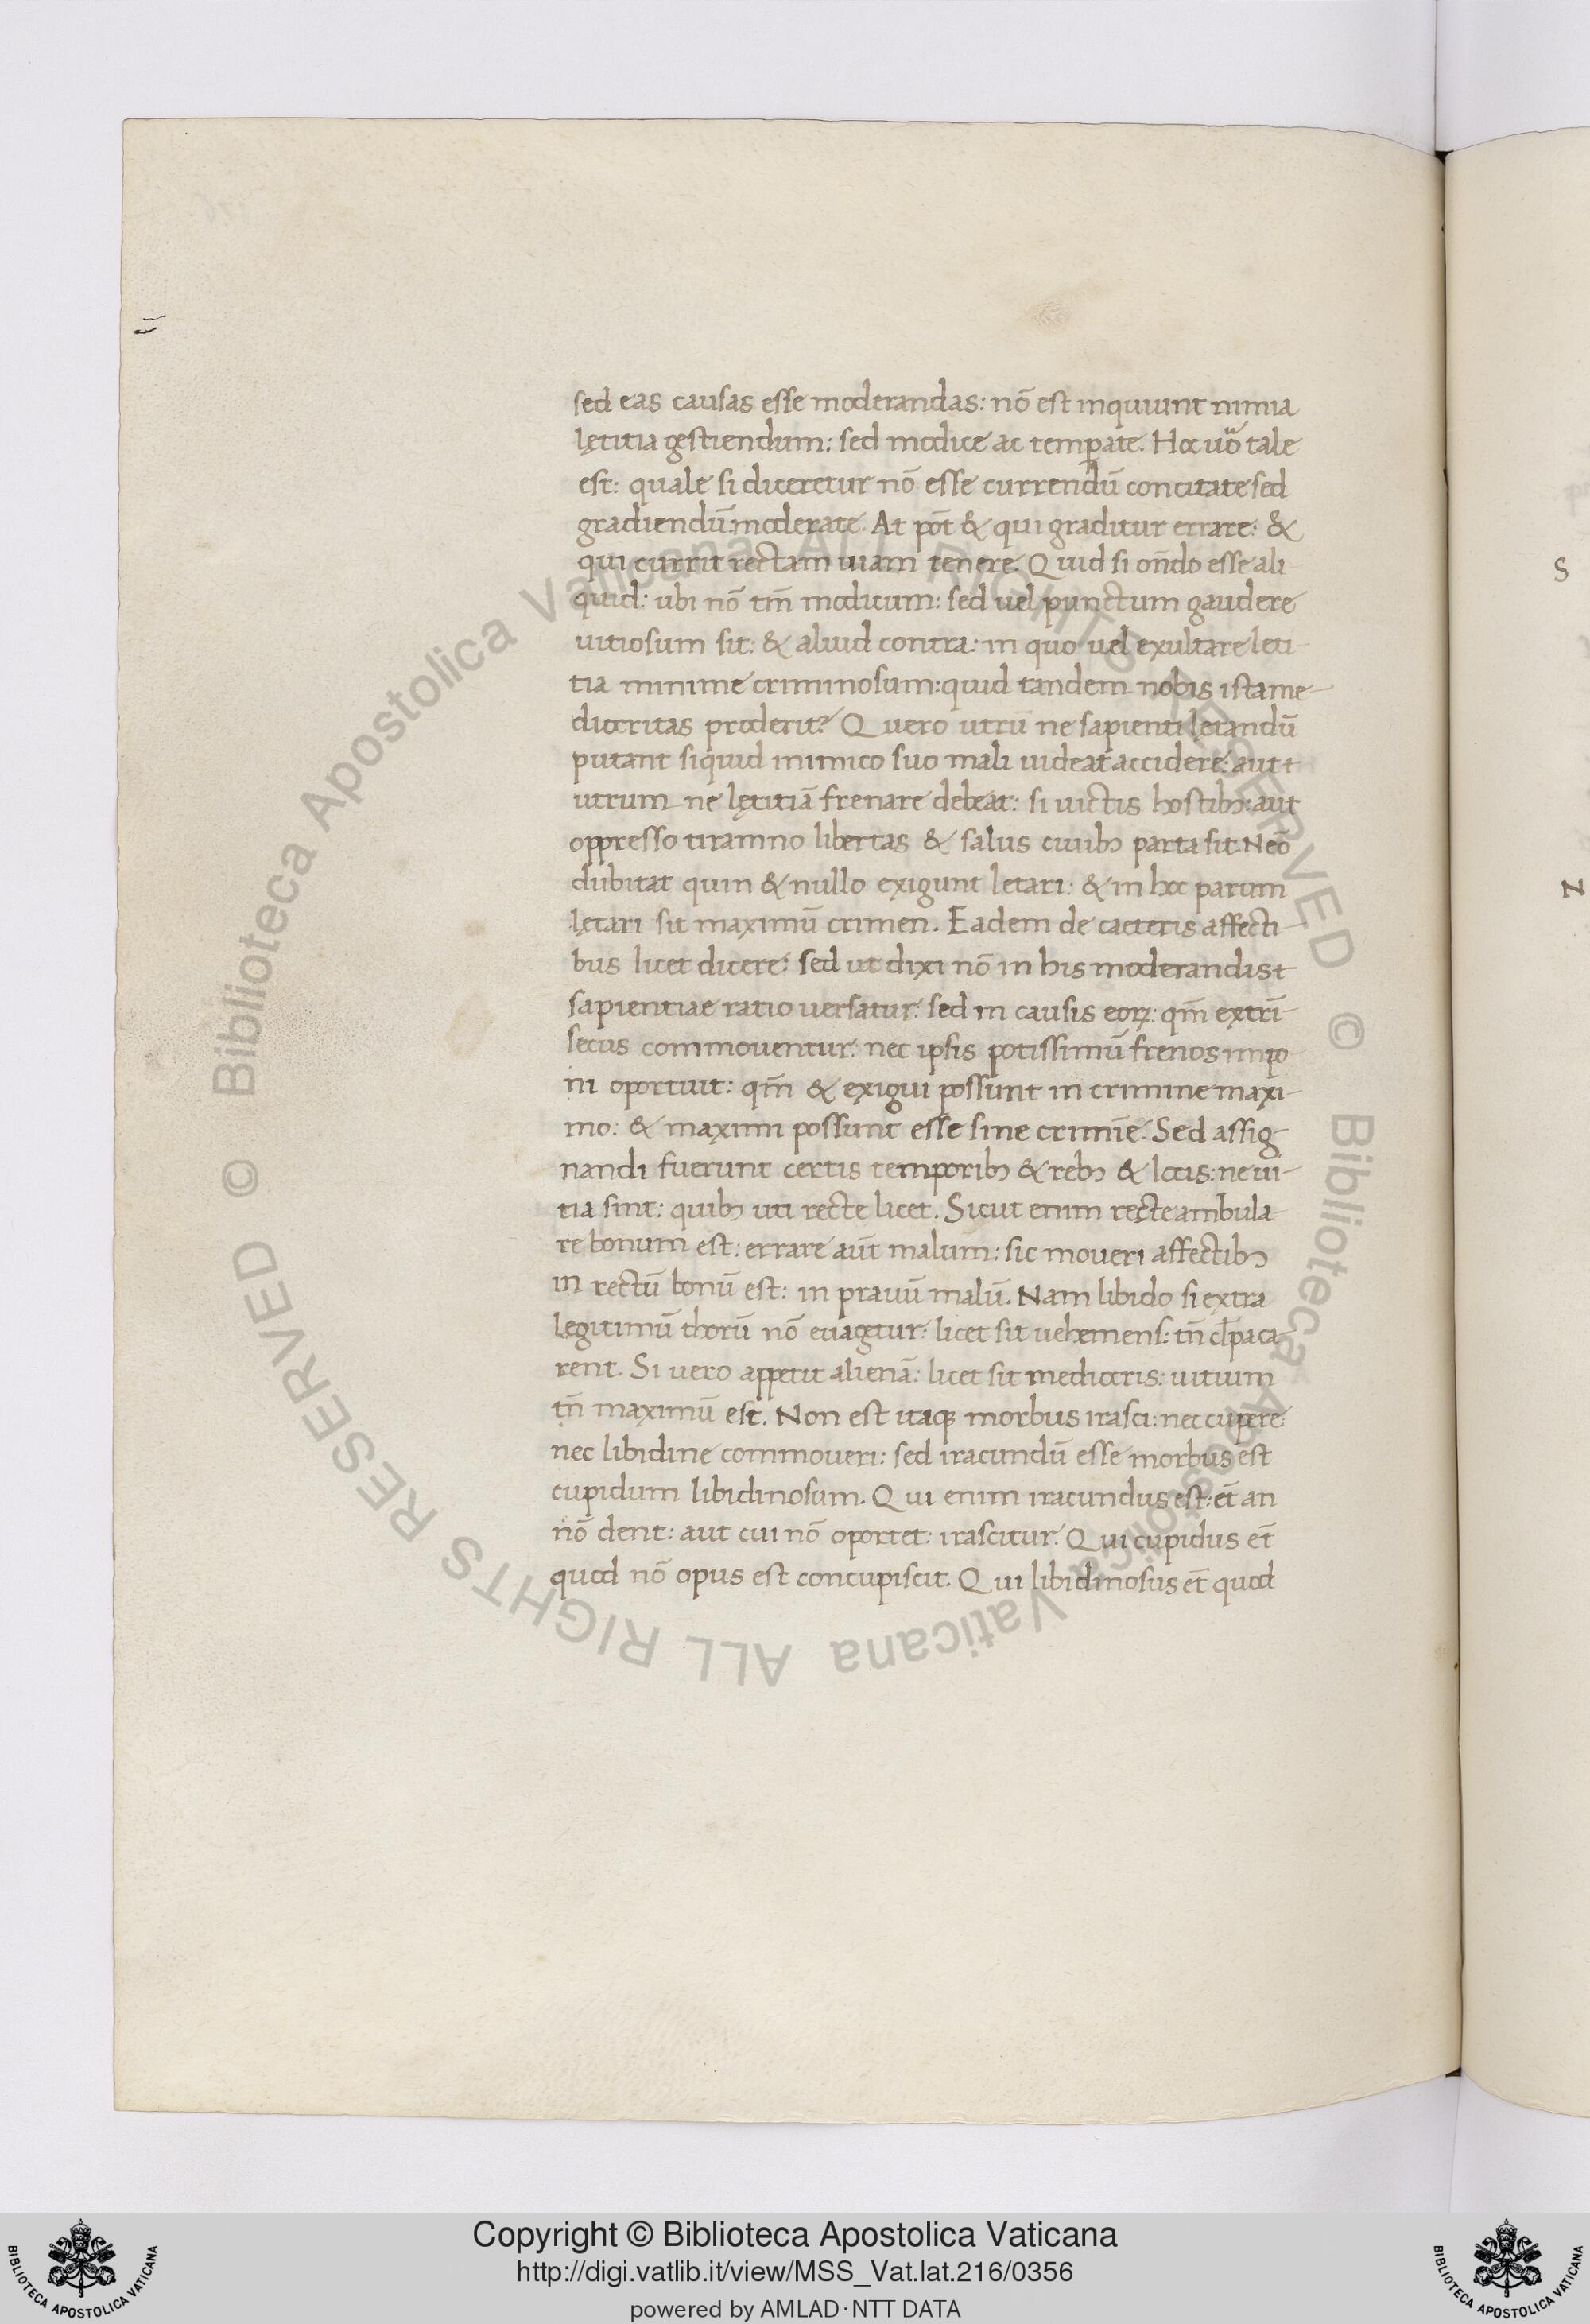 sed eas causas esse moderandas: nō est inquiunt nimia
lętitia gestiendum: sed modice ac temꝑate. Hoc uo᷑ tale
est: quale si diceretur nō esse currendū concitate sed
gradiendū: moderate. At pōt & qui graditur errare: &
qui currit rectam uiam tenere. Quid si on̄do esse ali
quid: ubi nō tm̄ modicum: sed uel punctum gaudere
uitiosum sit: & aliud contra: in quo uel exultare leti-
tia minime criminosum: quid tandem nobis ista me-
diocritas proderit? Quero utrū ne sapienti lętandū
putant siquid inimico suo mali uideat̄ accidere: aut
utrum ne lętitiā frenare debeat: si uictis hostibꝫ: aut
oppresso tiramno libertas & salus ciuibꝫ parta sit. Neō
dubitat quin & nullo exigunt letari: & in hoc parum
lętari sit maximū crimen. Eadem de caeteris affecti-
bus licet dicere: sed ut dixi nō in his moderandis
sapientiae ratio uersatur: sed in causis eoꝝ: qm̄ extrī-
secus commouentur: nec ipsis potissimū frenos impo
ni oportuit: qm̄ & exigui possunt in crimine maxi-
mo: & maximi possunt esse sine crimīe. Sed assig
nandi fuerunt certis temporibꝫ & rebꝫ & locis: ne ui-
tia sint: quibꝫ uti recte licet. Sicut enim recte ambula-
re bonum est: errare aūt malum: sic moueri affectibꝫ
in rectū bonū est: in prauū malū. Nam libido si extra
legitimū thorū nō euagetur: licet sit uehemens: tn̄ cl̄pa ca
rent. Si uero appetit alienā: licet sit mediocris: uitium
tn̄ maximū est. Non est itaqꝫ morbus irasci: nec cupere:
nec libidine commoueri: sed iracundū esse morbus est
cupidum libidinosum. Qui enim iracundus est: et̄ an
nō dent: aut cui nō oportet: irascitur. Qui cupidus et̄
quod nō opus est concupiscit. Qui libidinosus et̄ quod
S
Z
© Biblioteca Apostolica Vaticana ALL RIGHTS RESERVED
© Biblioteca Apostolica Vaticana ALL RIGHTS RESERVED
Copyright © Biblioteca Apostolica Vaticana
http://digi.vatlib.it/view/MSS_Vat.lat.216/0356
powered by AMLAD·NTT DATA
BIBLIOTECA APOSTOLICA VATICANA
BIBLIOTECA APOSTOLICA VATICANA